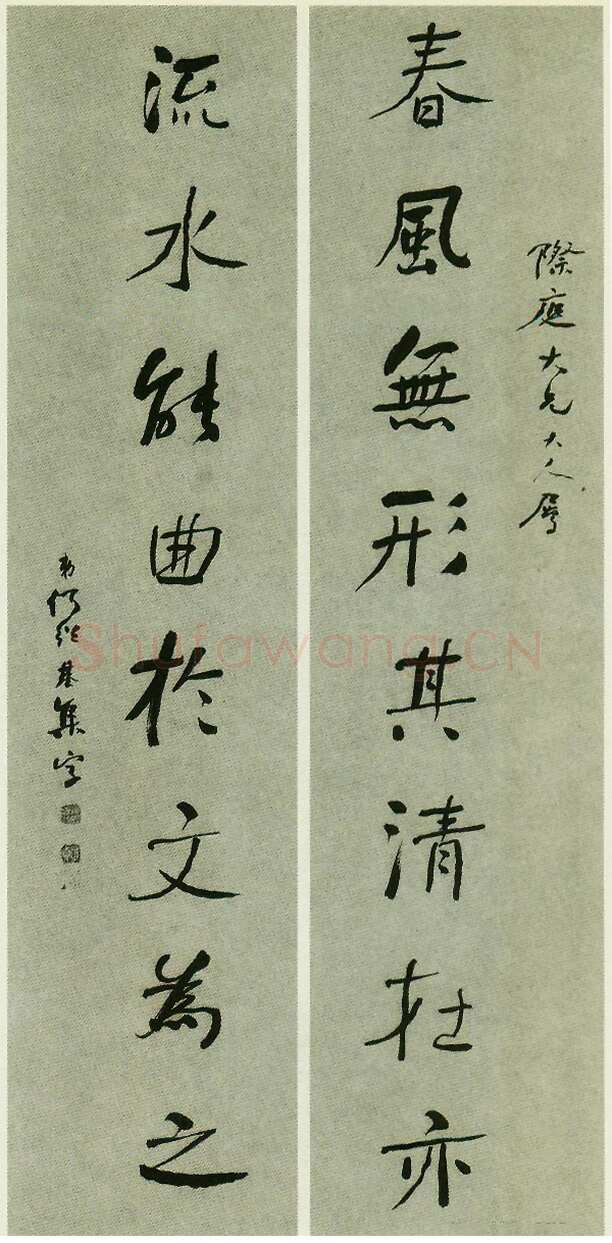 際庭大兄大人屬
春風無形其清在亦
流水能曲於文為之
弟何維基集字
Shufawang.CN